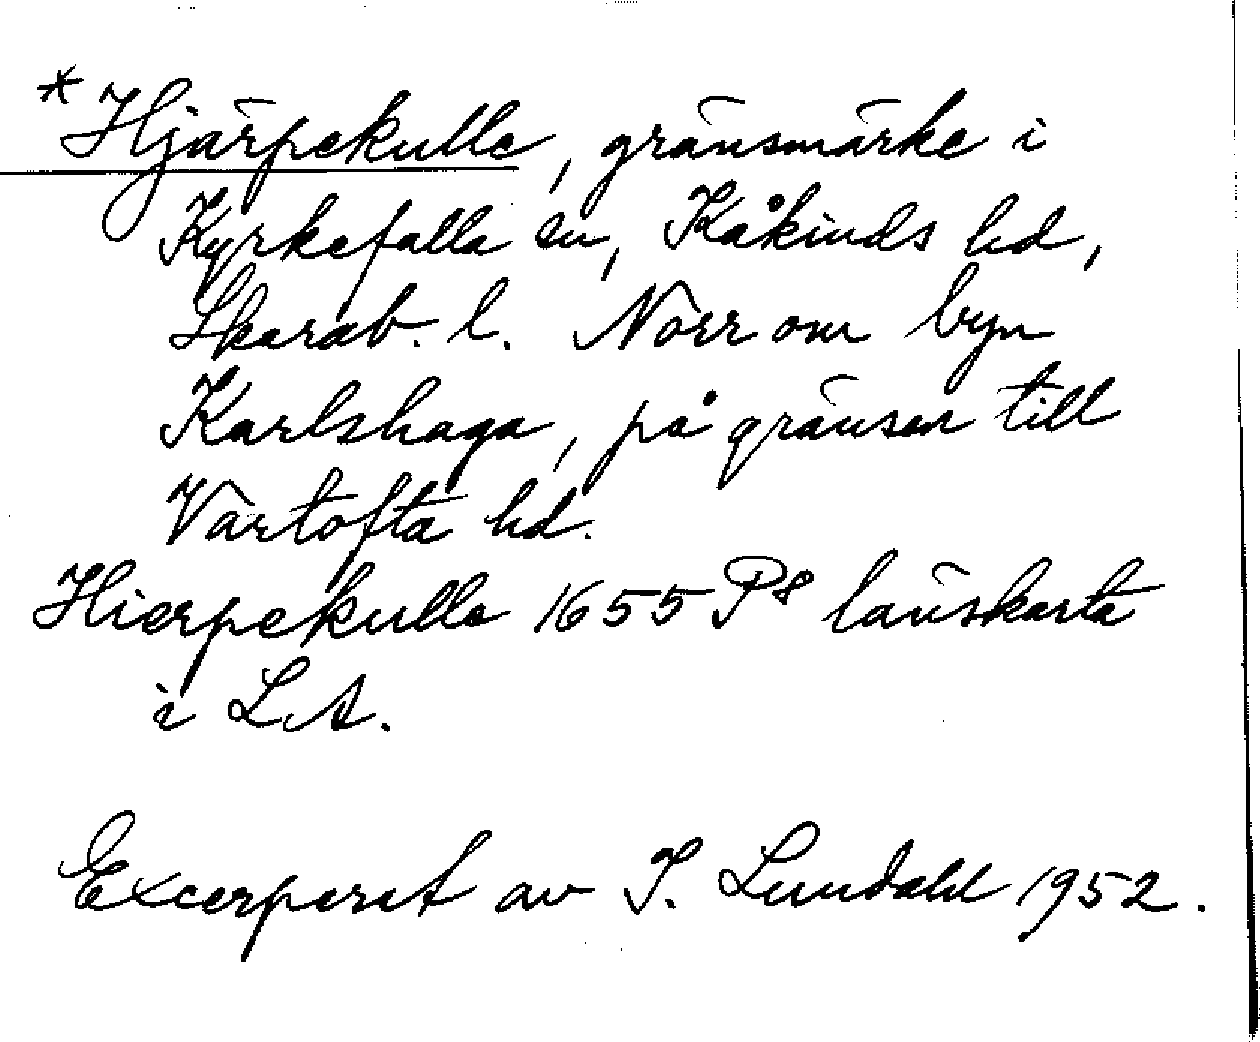 *Hjärpekulle, gränsmärke i
Kyrkefalla sn, Kåkinds hd,
Skarab. l. Norr om byn
Karlshaga, på gränsen till
Vartofta hd.
Hierpekulle 1655 P8 länskarta
i LA.
Excerperat av I. Lundahl 1952.